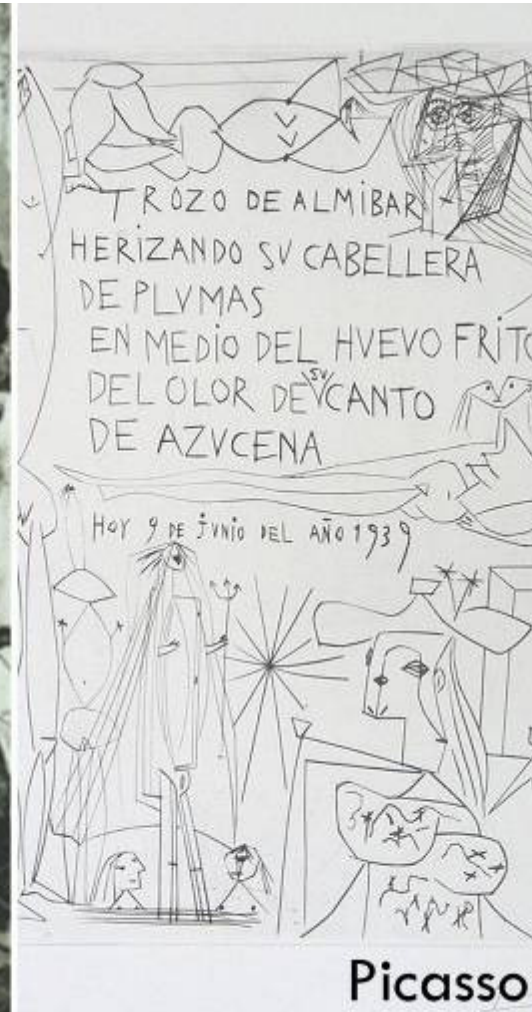 TROZO DE ALMIBAR
HERIZANDO SV CABELLERA
DE PLVMAS
EN MEDIO DEL HVEVO FRITO
DEL OLOR DE SV CANTO
DE AZVCENA
HOY 9 DE jVNiO DEL AÑO 1939
Picasso